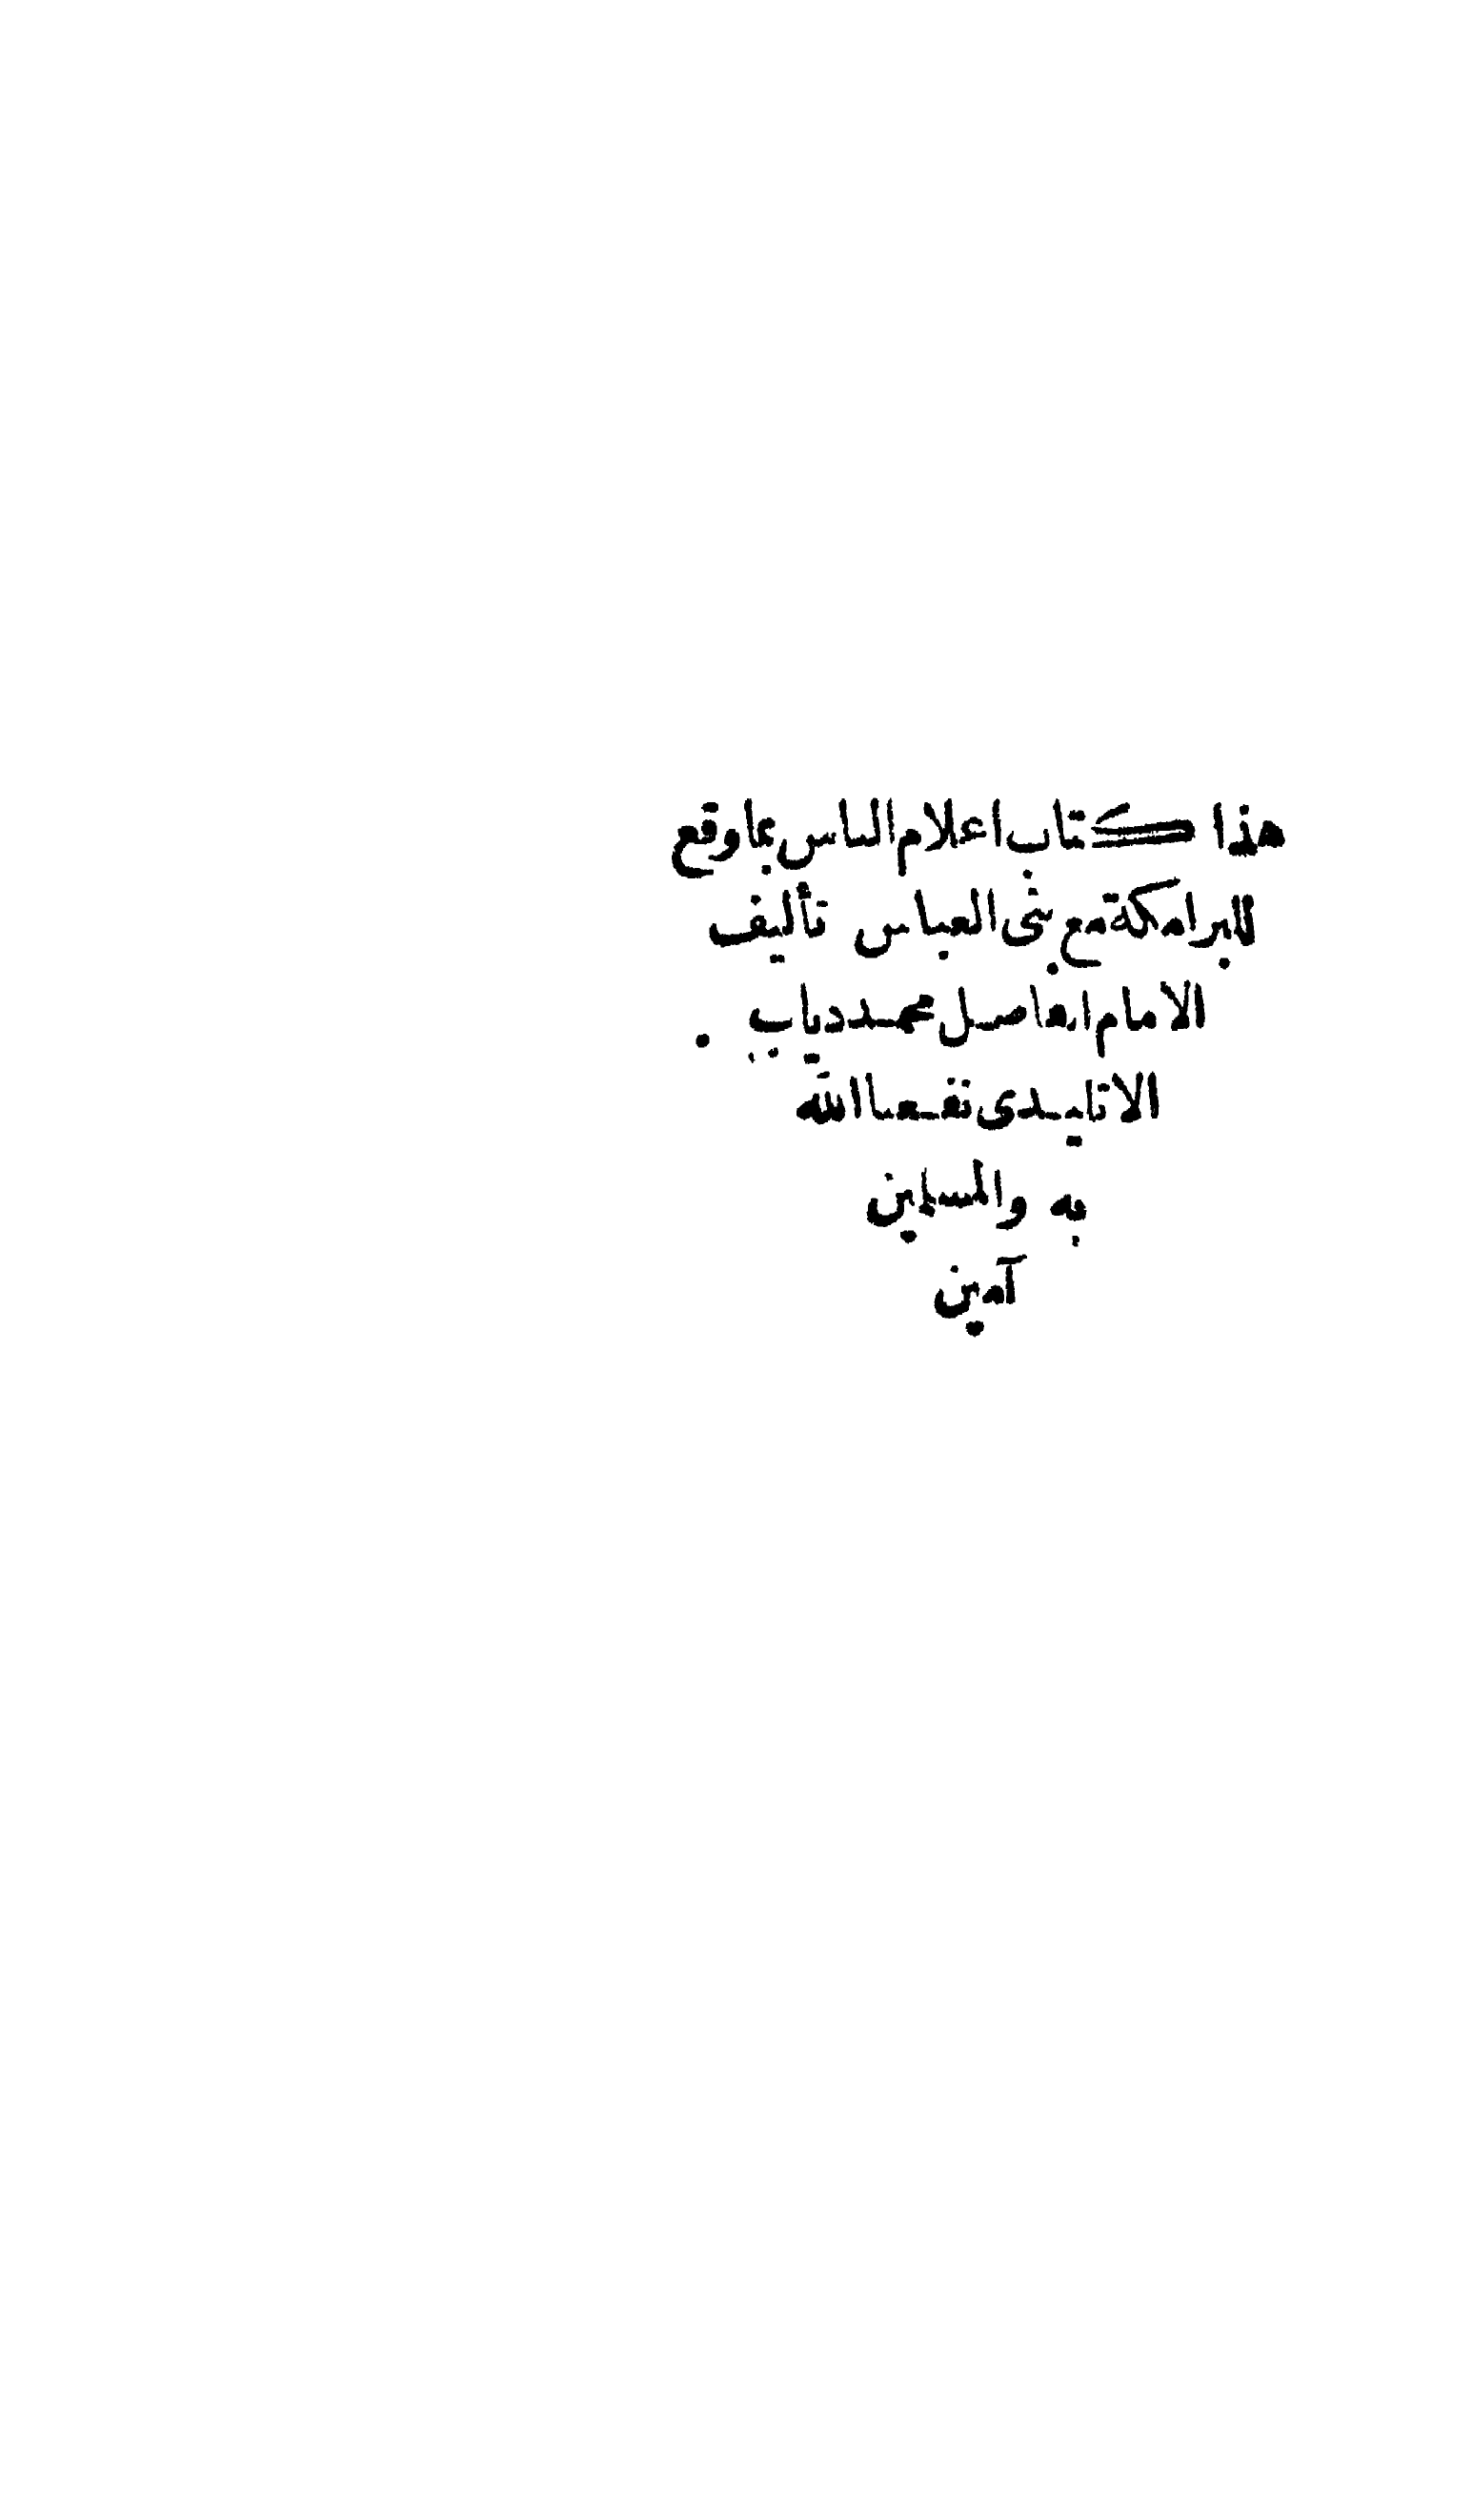 هذا كتاب اعلام الناس بما وقع
للبرامكة مع بنى العباس تأليف
الامام الفاضل محمد دياب
الاتليدى نفعنا الله
به والمسلمين
آمين